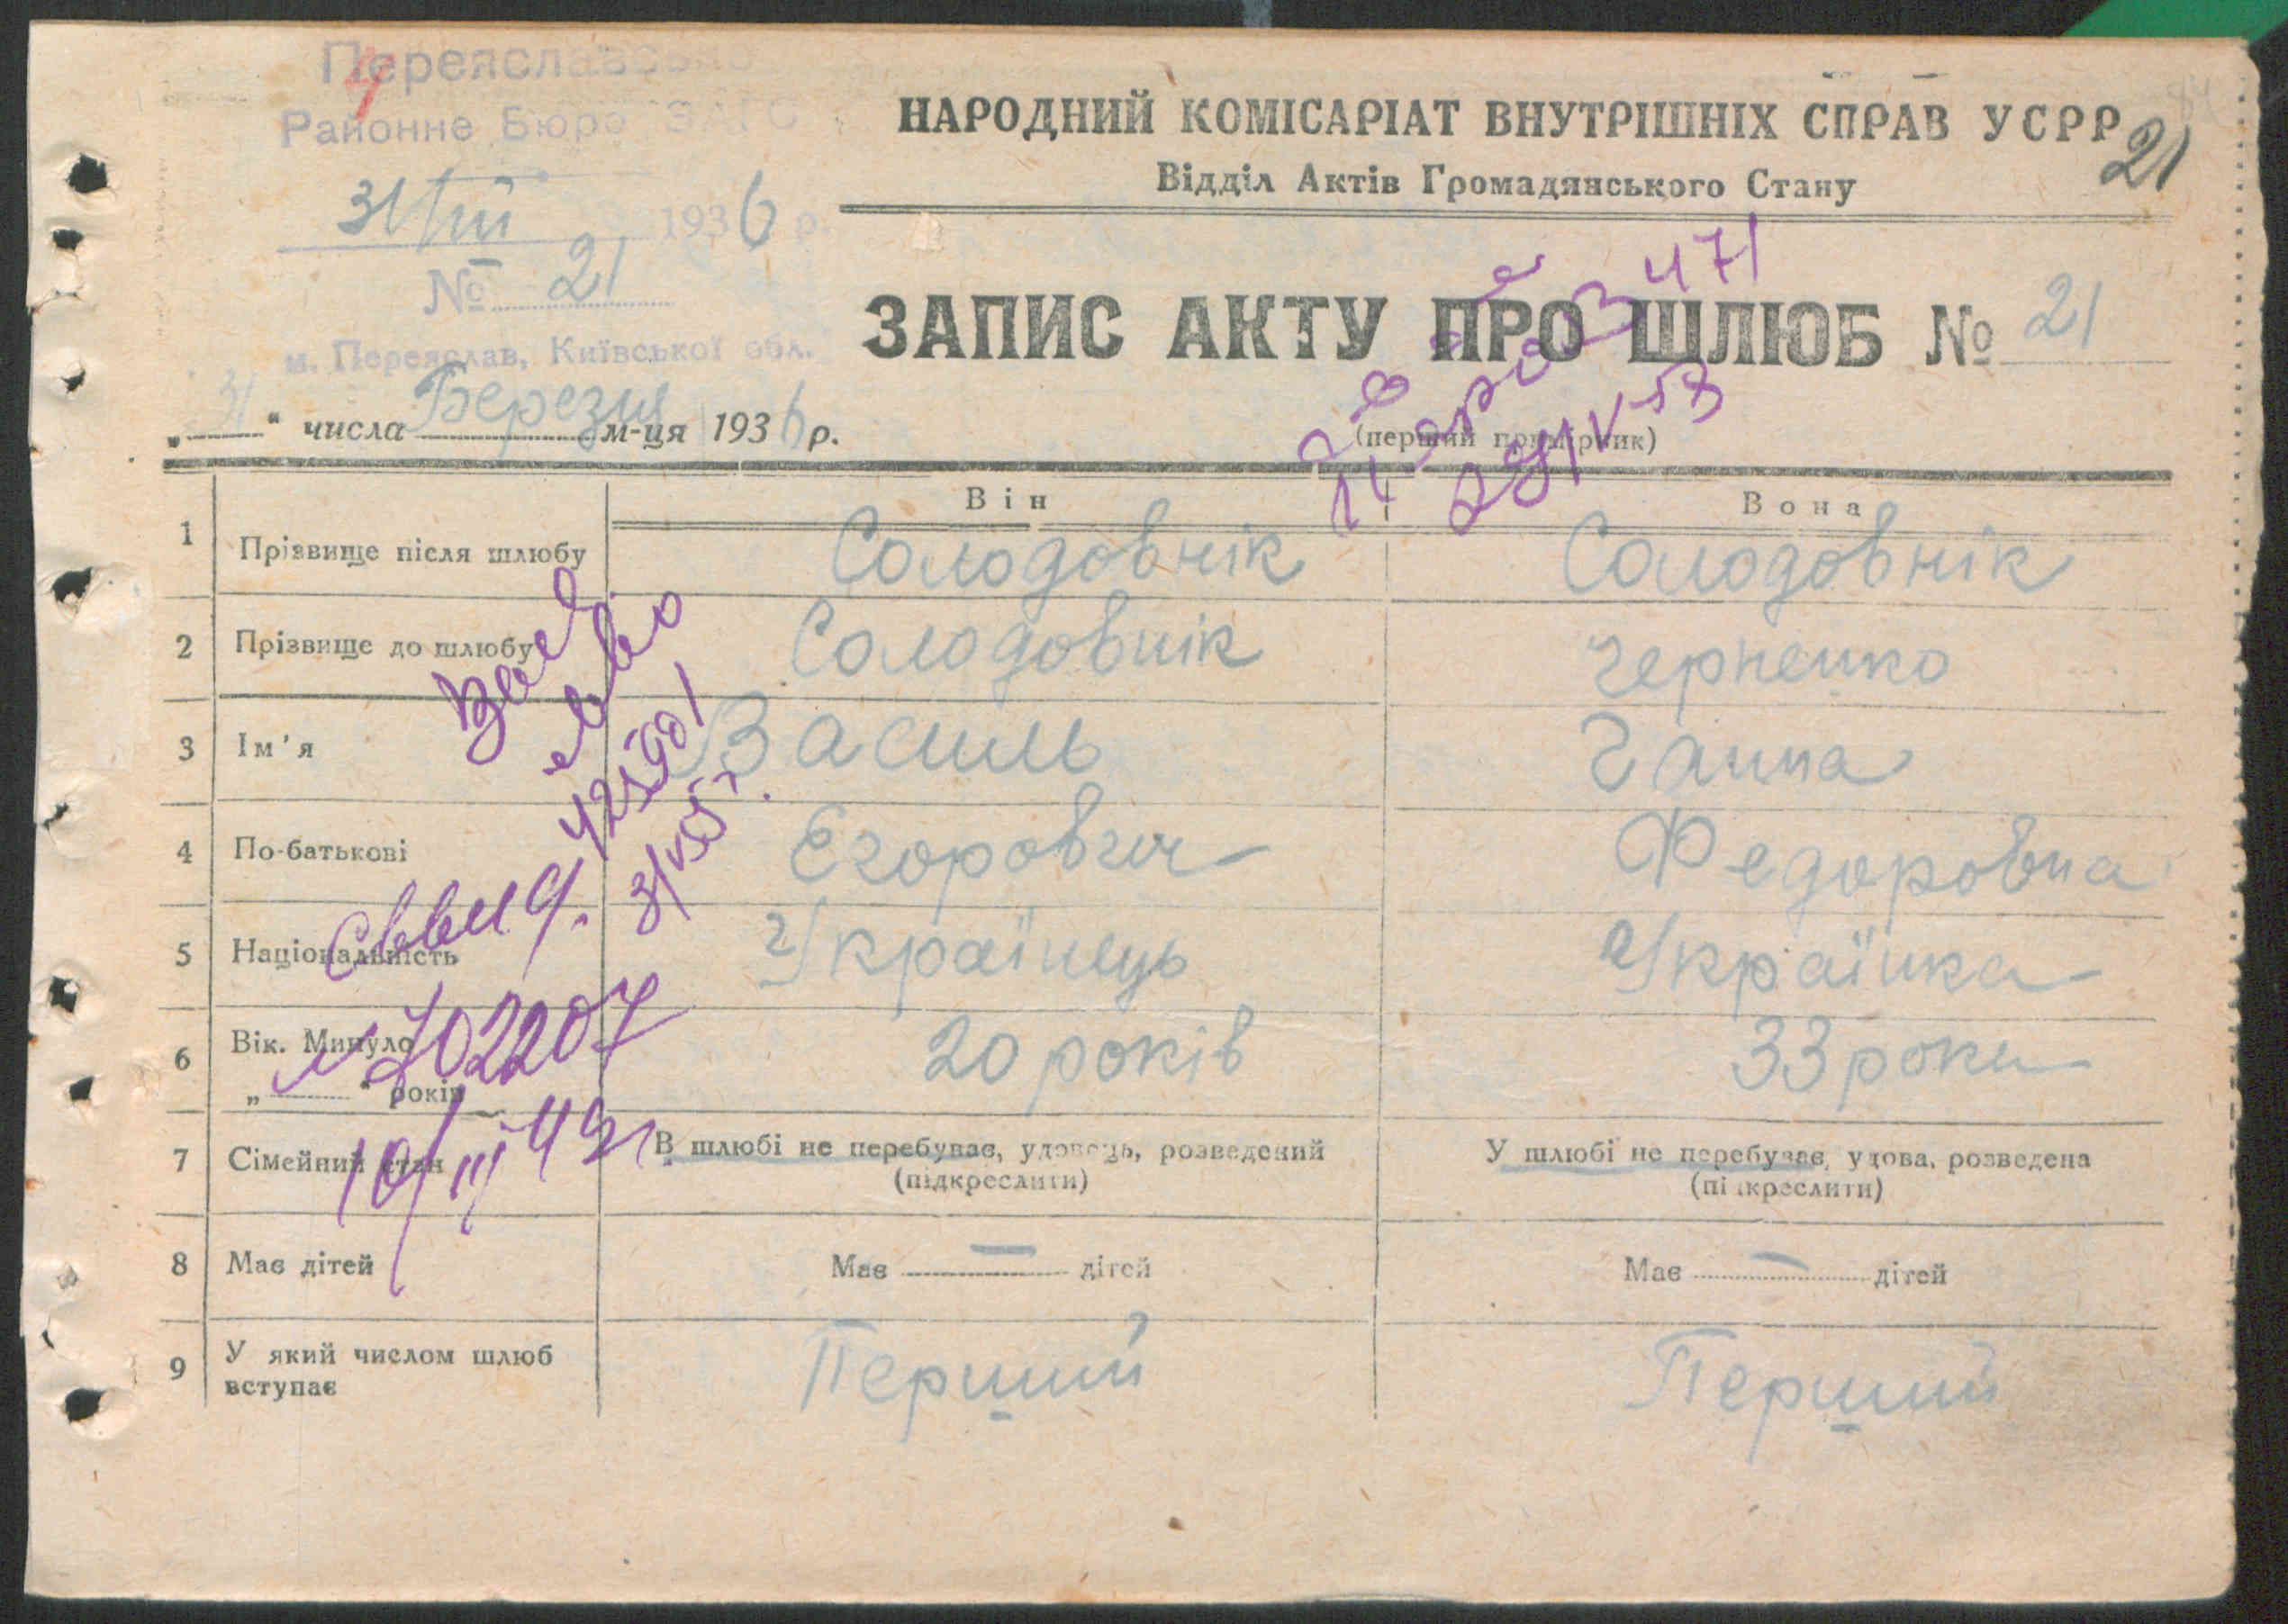 Переяславське
Районне Бюро ЗАГС
31/III 1936 р.
№ 21
м. Переяслав, Київської обл.
"31" числа Березня м-ця 1936 р.
НАРОДНИЙ КОМІСАРІАТ ВНУТРІШНІХ СПРАВ УСРР
21
Відділ Актів Громадянського Стану
ЗАПИС АКТУ ПРО ШЛЮБ № 21
(перший примірник)
Він
Вона
1 Прізвище після шлюбу Солодовнік Солодовнік
2 Прізвище до шлюбу Солодовнік Черненко
3 Ім'я Василь Ганна
4 По-батькові Єгорович Федоровна
5 Національність Українець Українка
6 Вік. Минуло "" років 20 років 33 роки
7 Сімейний стан В шлюбі не перебуває, удовець, розведений У шлюбі не перебуває, удова, розведена
(підкреслити) (підкреслити)
8 Має дітей Має — дітей Має — дітей
9 У який числом шлюб вступає Перший Перший
702207